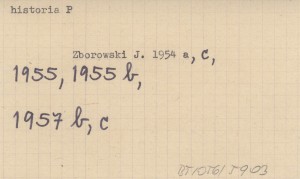 historia P
Zborowski J. 1954 a, c,
1955, 1955 b,
1957 b, c